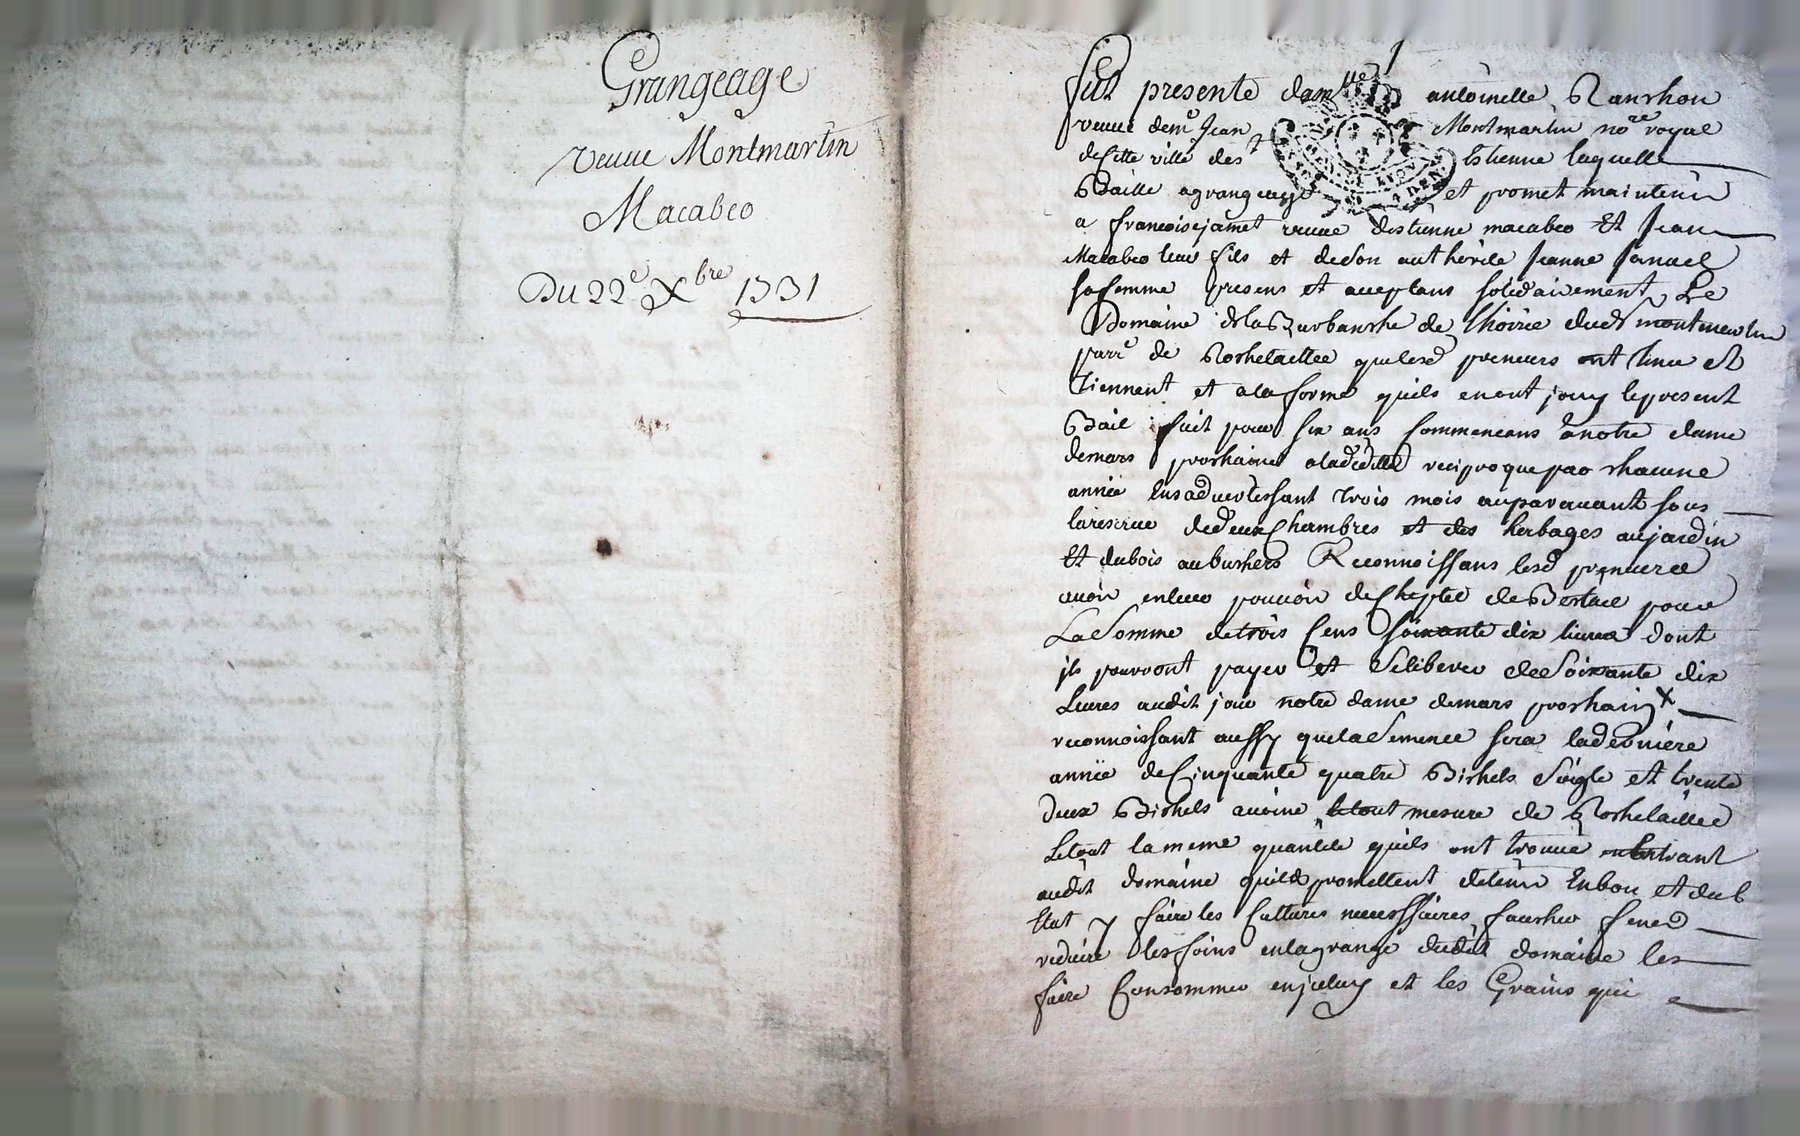 Grangeage
veuve Montmartin
Macabeo
Du 22e Xbre 1731
fut presente damlle antoinette Ranchon
veuve de mr Jean Montmartin nore royal
de Cette ville de st Estienne laquelle
Baille a grangeage et promet maintenir
a francoise jamet veuve destienne macabeo Et Jean
Macabeo leur fils et de son authorité Jeanne
sa femme presens et acceptans solidairement Le
Domaine de la Barbanche de l'hoirie dud montmartin
parre de Rochetaillee que lesd preneurs ont tenu et
Tiennent et a la forme quils en ont jouy le present
Bail fait pour six ans Commencans a notre dame
de mars prochaine a la deditte reciproque par chacune
année En s'advertissant trois mois auparavant sous
la reserve de deux Chambres et des herbages au jardin
Et du bois au buchers Reconnoissans lesd preneurs
avoir en leur pouvoir de Cheptel de Bestail pour
La Somme de trois Cens soixante dix livres dont
ils pourront payer et se liberer de Soixante dix
Livres audit jour notre dame de mars prochain x
reconnoissant aussy que la Semence sera la derniere
année de Cinquante quatre Bichets Seigle et trente
deux Bichets avoine le tout mesure de Rochetaillee
Le tout la meme quantité quils ont trouvé entrant
audit domaine quils promettent de tenir En bon et du b
Etat y faire les Cultures necessaires faucher fener
reduire les foins en la grange dudit domaine les
faire Consommer en jceluy et les Grains qui